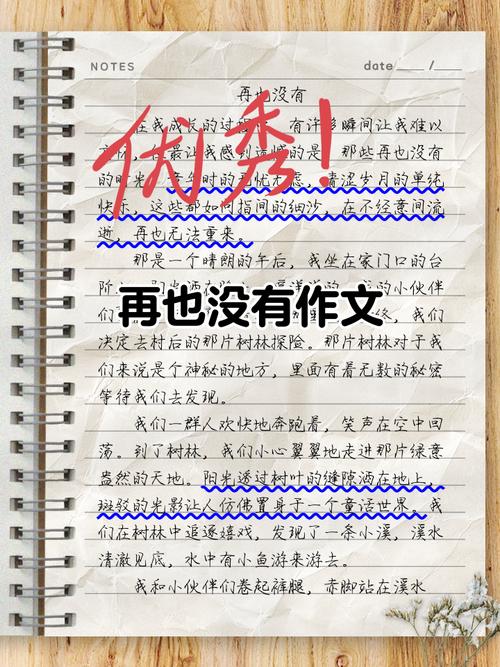 NOTES
date ____ / ____
再也没有
优秀!
在我成长的过 有许多瞬间让我难以
最让我感到遗憾的是,那些再也没有
的时光。童年时的无忧无虑,青涩岁月的单纯
快乐,这些都如同指间的细沙,在不经意间流
逝,再也无法重来。
那是一个晴朗的午后,我坐在家门口的台
阶 的小伙伴
们 我们
再也没有作文
决定去村后的那片树林探险。那片树林对于我
们来说是个神秘的地方,里面有着无数的秘密
等待我们去发现。
我们一群人欢快地奔跑着,笑声在空中回
荡。到了树林,我们小心翼翼地走进那片绿意
盎然的天地。阳光透过树叶的缝隙洒在地上,
斑驳的光影让人仿佛置身于一个童话世界。我
们在树林中追逐嬉戏,发现了一条小溪,溪水
清澈见底,水中有小鱼游来游去。
我和小伙伴们卷起裤腿,赤脚站在溪水